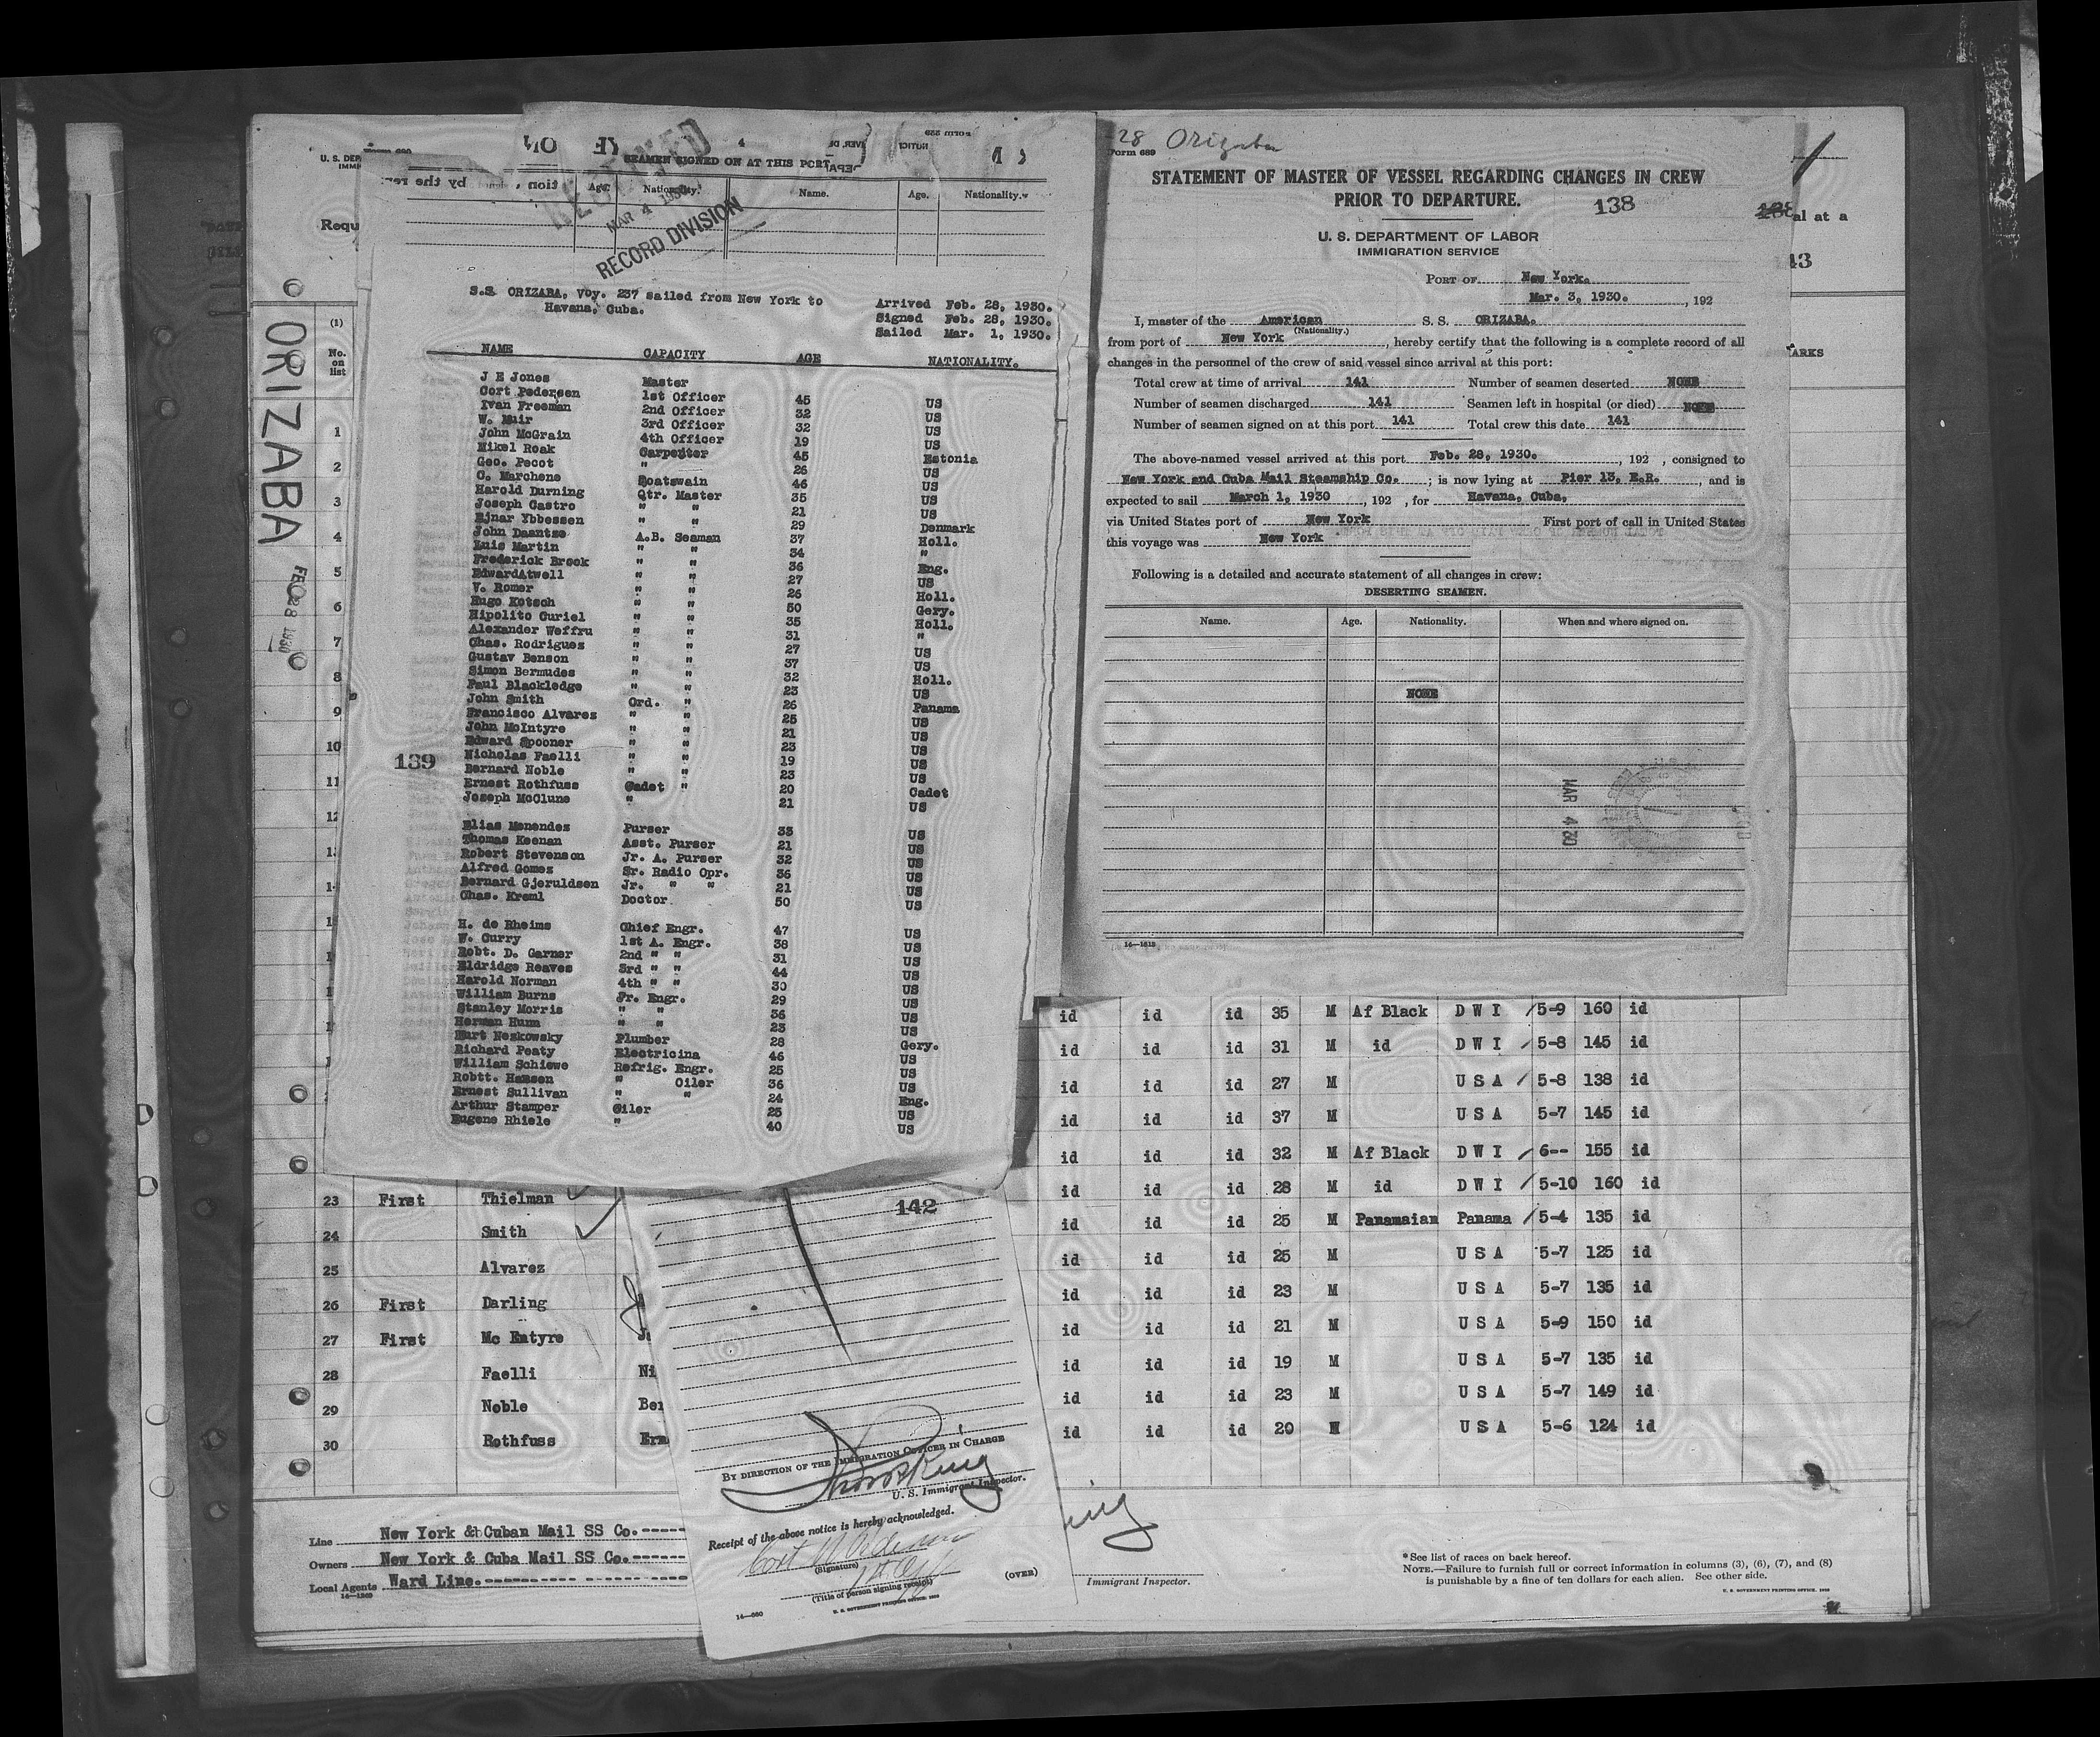 SEAMEN SIGNED ON AT THIS PORT
Age. Nationality. Name. Age. Nationality.
MAR 4 1930
RECORD DIVISION
S.S. ORIZABA, Voy. 237 sailed from New York to
Havana, Cuba.
Arrived Feb. 28, 1930.
Signed Feb. 28, 1930.
Sailed Mar. 1, 1930.
NAME CAPACITY AGE NATIONALITY.
J E Jones Master
Cort Pedersen 1st Officer 45 US
Ivan Freeman 2nd Officer 32 US
W. Muir 3rd Officer 32 US
John McGrain 4th Officer 19 US
Mikel Roak Carpenter 45 Estonia
Geo. Pecot " 26 US
C. Marchene Boatswain 46 US
Harold Durning Qtr. Master 35 US
Joseph Castro " " 21 US
Ejnar Ybbessen " " 29 Denmark
John Daantse A.B. Seaman 37 Holl.
Luis Martin " " 34 "
Frederick Brook " " 36 Eng.
EdwardAtwell " " 27 US
V. Romer " " 26 Holl.
Hugo Kotsch " " 50 Gery.
Hipolito Curiel " " 35 Holl.
Alexander Weffru " " 31 "
Chas. Rodrigues " " 27 US
Gustav Benson " " 37 US
Simon Bermudes " " 32 Holl.
Paul Blackledge " " 23 US
John Smith Ord. " 26 Panama
Francisco Alvares " " 25 US
John McIntyre " " 21 US
Edward Spooner " " 23 US
Nicholas Faelli " " 19 US
Bernard Noble " " 23 US
Ernest Rothfuss Cadet " 20 Cadet
Joseph McClune " 21 US
139
Elias Menendez Purser 33 US
Thomas Keenan Asst. Purser 21 US
Robert Stevenson Jr. A. Purser 32 US
Alfred Gomez Sr. Radio Opr. 36 US
Bernard Gjeruldsen Jr. " " 21 US
Chas. Kreml Doctor 50 US
H. de Rheims Chief Engr. 47 US
W. Curry 1st A. Engr. 38 US
Robt. D. Garner 2nd " " 31 US
Eldridge Reaves 3rd " " 44 US
Harold Norman 4th " " 30 US
William Burns Jr. Engr. 29 US
Stanley Morris " " 36 US
Herman Hunn " " 23 US
Kurt Neskowsky Plumber 28 Gery.
Richard Peaty Electricina 46 US
William Schiewe Refrig. Engr. 25 US
Robtt. Hansen " Oiler 36 US
Ernest Sullivan " " 24 Eng.
Arthur Stamper Oiler 25 US
Eugene Rhiele " 40 US
28 Orizaba
Form 689
STATEMENT OF MASTER OF VESSEL REGARDING CHANGES IN CREW
PRIOR TO DEPARTURE.
138
U. S. DEPARTMENT OF LABOR
IMMIGRATION SERVICE
PORT OF New York.
Mar. 3, 1930. , 192
I, master of the American S. S. ORIZABA.
(Nationality.)
from port of New York , hereby certify that the following is a complete record of all
changes in the personnel of the crew of said vessel since arrival at this port:
Total crew at time of arrival 141 Number of seamen deserted NONE
Number of seamen discharged 141 Seamen left in hospital (or died) NONE
Number of seamen signed on at this port 141 Total crew this date 141
The above-named vessel arrived at this port Feb. 28, 1930. , 192 , consigned to
New York and Cuba Mail Steamship Co. ; is now lying at Pier 13, E.R. , and is
expected to sail March 1, 1930 , 192 , for Havana, Cuba,
via United States port of New York First port of call in United States
this voyage was New York
Following is a detailed and accurate statement of all changes in crew:
DESERTING SEAMEN.
Name. Age. Nationality. When and where signed on.
NONE
MAR 4 30
16—1818
U. S. DEP
IMMI
Requ
al at a
43
ARKS
ORIZABA
FEB 28 1930
(1)
No.
on
list
1
2
3
4
5
6
7
8
9
10
11
12
id id id 35 M Af Black D W I 5-9 160 id
id id id 31 M id D W I 5-8 145 id
id id id 27 M U S A 5-8 138 id
id id id 37 M U S A 5-7 145 id
id id id 32 M Af Black D W I 6-- 155 id
23 First Thielman id id id 28 M id D W I 5-10 160 id
24 Smith id id id 25 M Panamaian Panama 5-4 135 id
25 Alvarez id id id 25 M U S A 5-7 125 id
26 First Darling id id id 23 M U S A 5-7 135 id
27 First Mc Entyre id id id 21 M U S A 5-9 150 id
28 Faelli Ni id id id 19 M U S A 5-7 135 id
29 Noble Ber id id id 23 M U S A 5-7 149 id
30 Rothfuss Ern id id id 20 M U S A 5-6 124 id
142
BY DIRECTION OF THE IMMIGRATION OFFICER IN CHARGE
U. S. Immigrant Inspector.
Receipt of the above notice is hereby acknowledged.
(Signature)
(Title of person signing receipt)
(OVER)
14—660
U. S. GOVERNMENT PRINTING OFFICE: 1929
Line New York & Cuban Mail SS Co.
Owners New York & Cuba Mail SS Co.
Local Agents Ward Line.
Immigrant Inspector.
*See list of races on back hereof.
NOTE.—Failure to furnish full or correct information in columns (3), (6), (7), and (8)
is punishable by a fine of ten dollars for each alien. See other side.